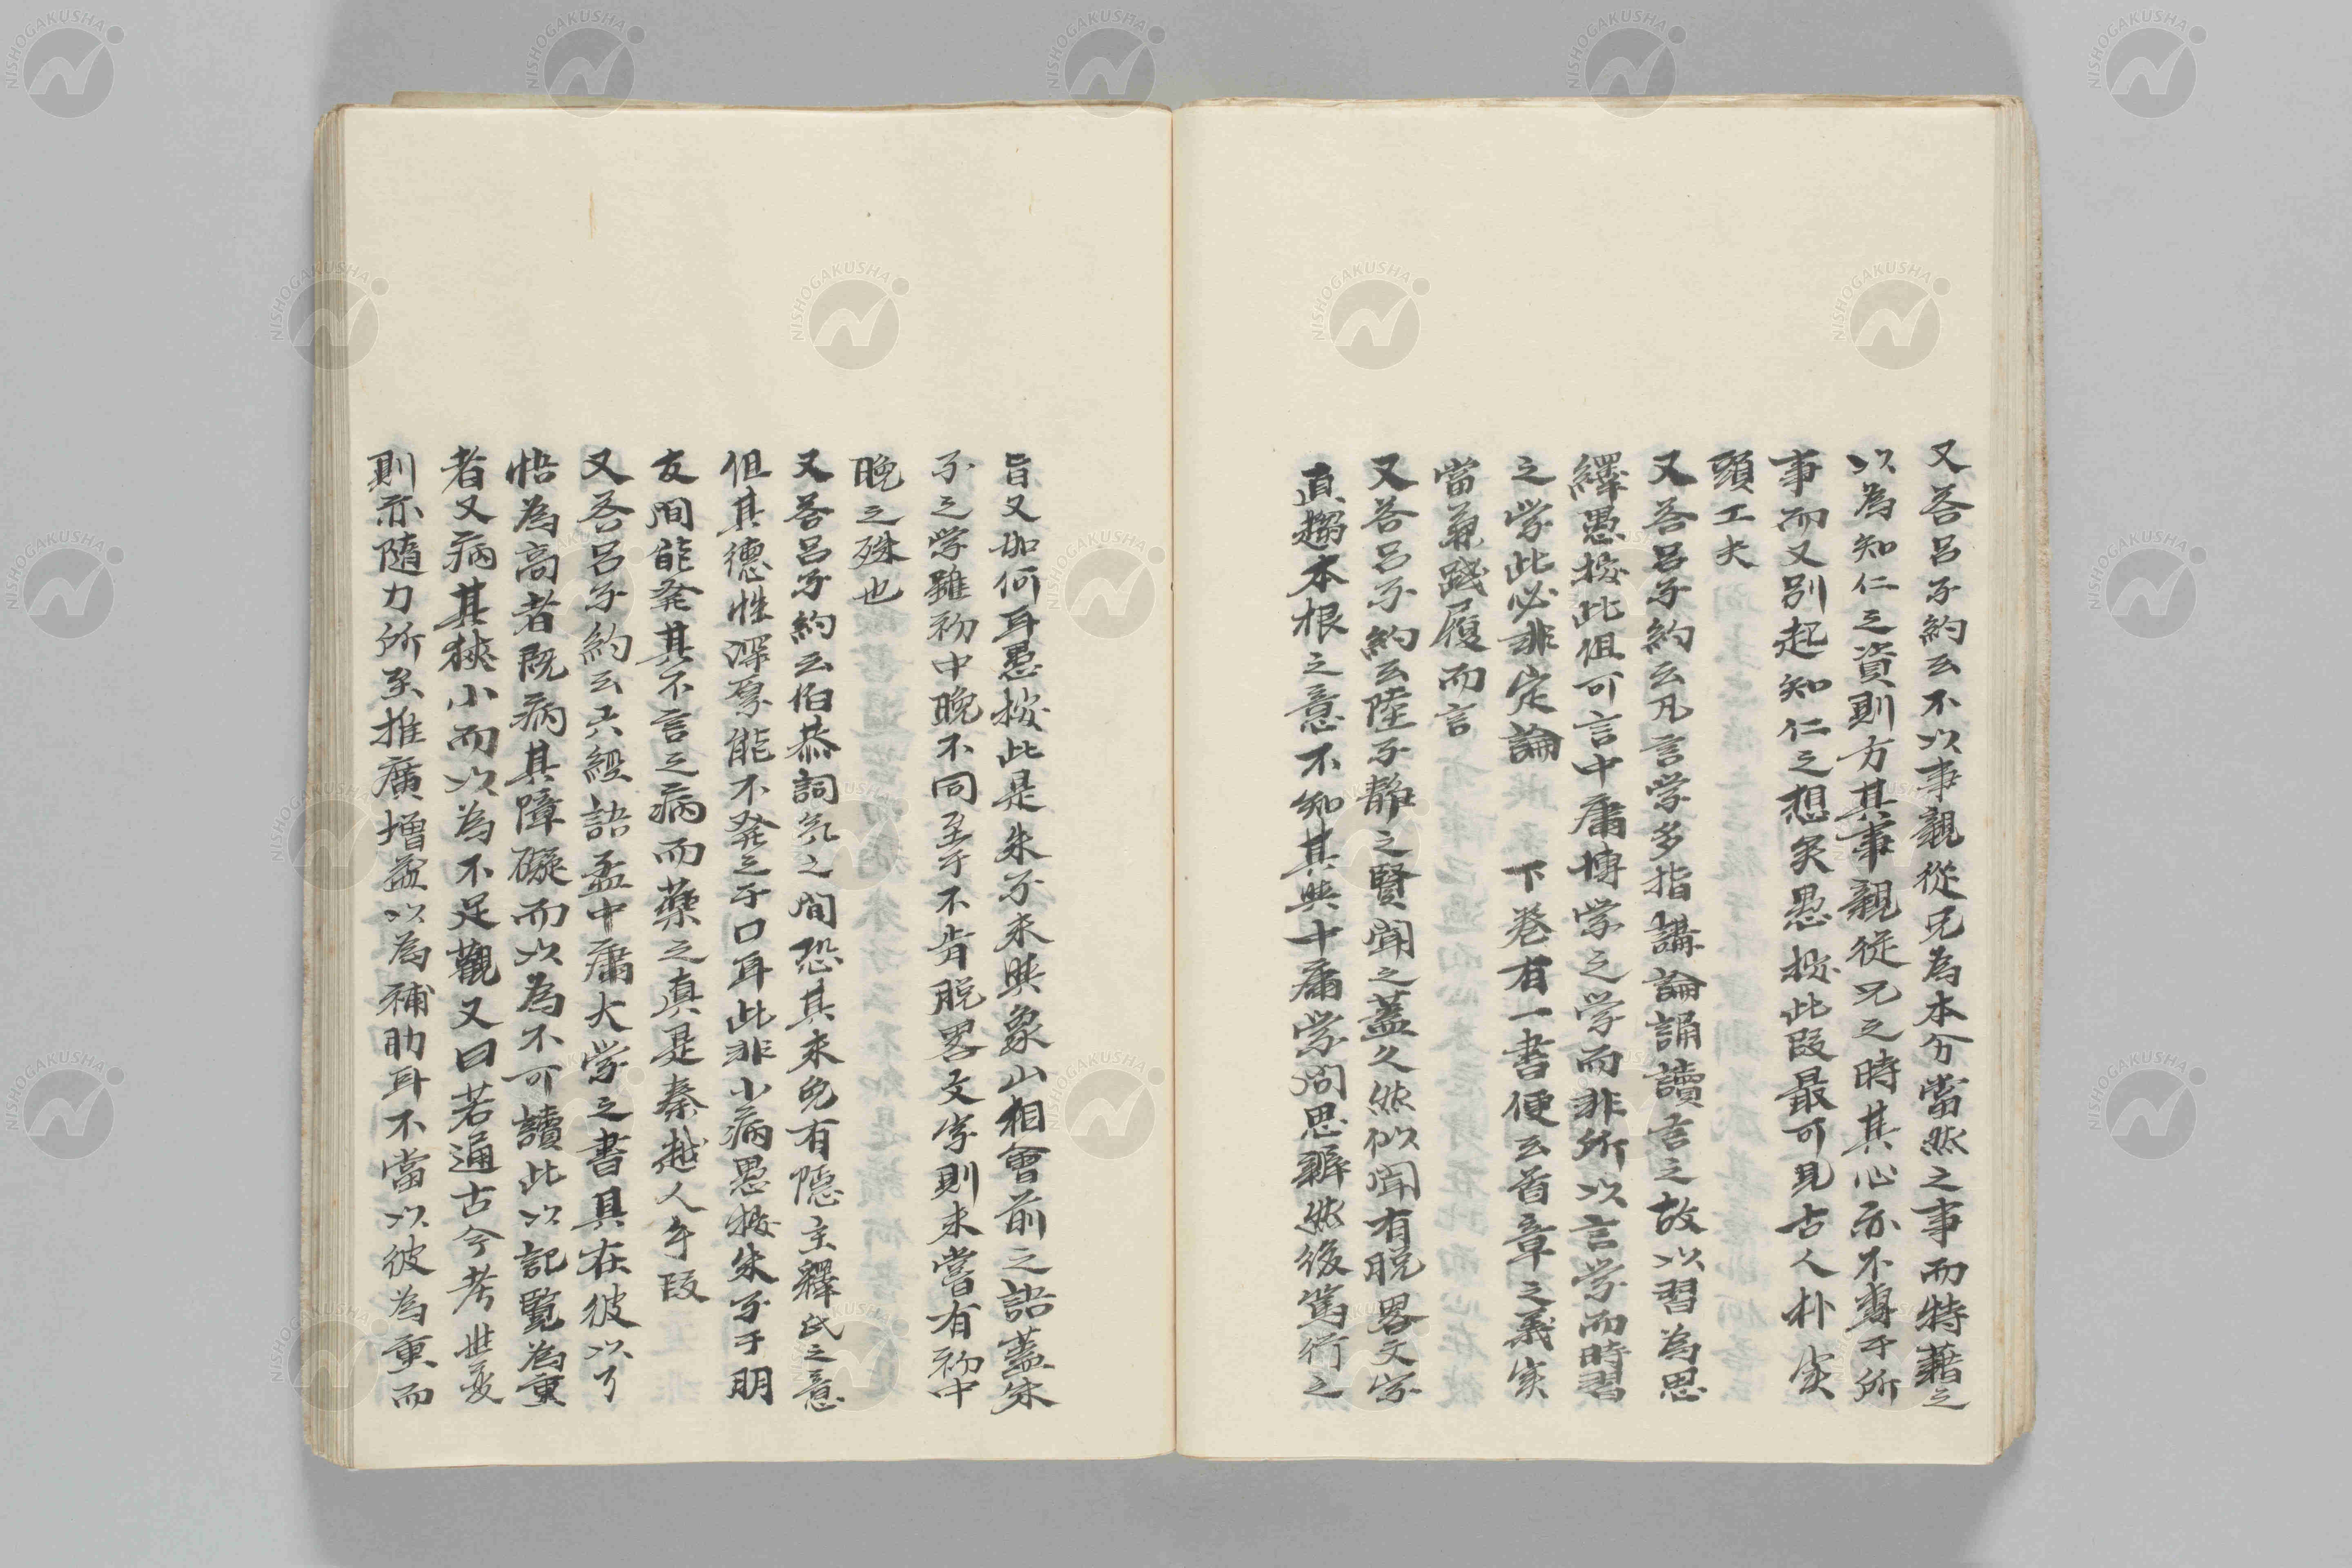 又答呂子約云不以事親從兄為本分當然之事而特藉之
以為知仁之資則方其事親從兄之時其心亦不專于所
事而又別起知仁之想矣愚按此段最可見古人朴实
頭工夫
又答呂子約云凡言学多指講論誦讀言之故以習為思
繹愚按此但可言中庸博学之学而非所以言学而時習
之学此必非定論　下卷有一書便云首章之義实
當兼踐履而言
又答呂子約云陸子静之賢聞之蓋久然似聞有脱畧文字
直趨本根之意不知其與中庸学問思辨然後篤行之
旨又如何耳愚按此是朱子未與象山相會前之語蓋朱
子之学雖初中晚不同至于不肯脱畧文字則未嘗有初中
晚之殊也
又答呂子約云伯恭詞氣之間恐其未免有隱主釋氏之意
但其德性深厚能不発之于口耳此非小病愚按朱子于朋
友間能発其不言之病而藥之真是秦越人手段
又答呂子約云六經語孟中庸大学之書具在彼以了
悟為高者既病其障礙而以為不可讀此以記覧為重
者又病其狹小而以為不足觀又曰若通古今考世変
則亦隨力所至推廣增益以為補助耳不當以彼為重而
NISHOGAKUSHA